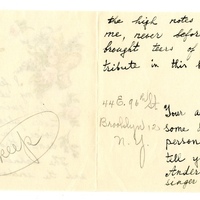 the high notes
me, never befor
brought tears of
tribute in this b
44 E. 96th St.
Brooklyn 12,
N.Y.
Your a
some
person
tell y
Ander
singer
keep